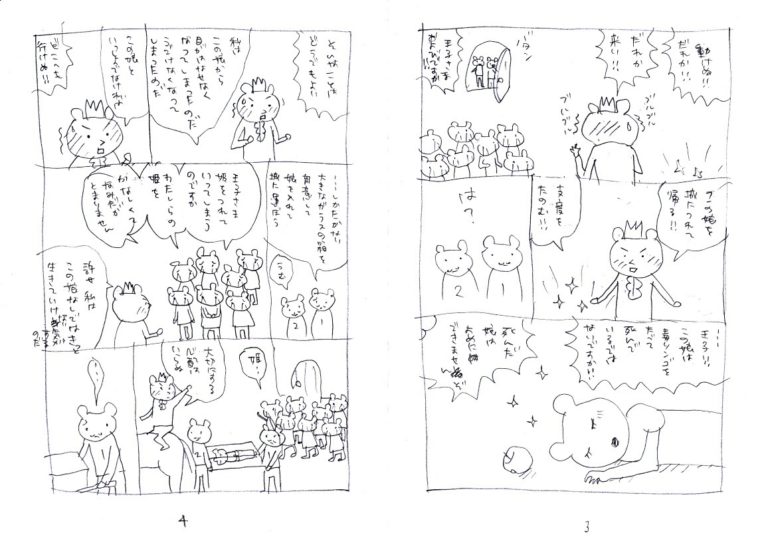 動けぬ!!
だれか!!
だれか
来い!!
ブルブル
ブルブル
バタン
王子さま
およびですか!!
この娘を
城につれて
帰る!!
支度を
たのむ!!
は?
1
2
…王子!!
この娘は
毒リンゴを
たべて
死んで
いるでは
ないですか!!
死んだ
娘は
できません
3
そんなことは
どうでもよい
私は
この娘から
目がはなせなく
なってしまったのだ
うごけなくなって
しまったのだ
この娘と
いっしょでなければ
どこへも
行けぬ!!
…しかたがない
大きなガラスの箱を
用意して
娘を入れて
城に運ぼう
うむ
1
2
王子さま
姫をつれて
いってしまう
のですか
わたしらの
姫を
かなしくて
なみだが
とまりません
許せ 私は
この姫なしではきっと
生きていけ
のだ
姫…
大切にする
心配は
いらぬ
2
4